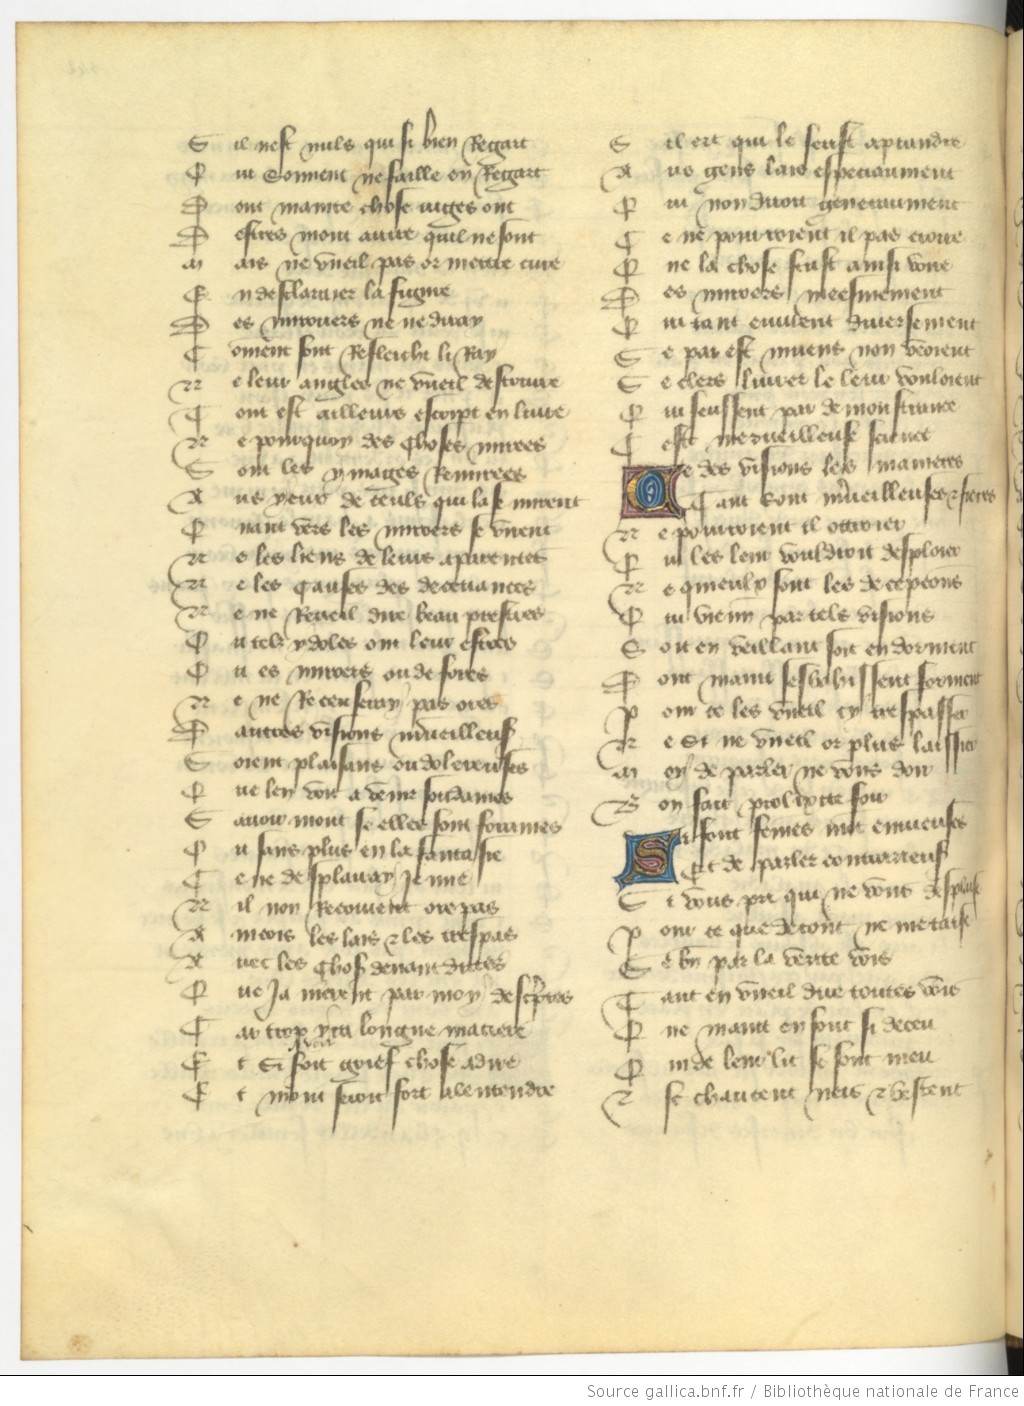 S il nest nuls qui si bien Regart
Q ui Conment ne faille en Regart
D ont mainte chose iuges ont
D estres mont autre quil ne sont
M ais ne vueil pas or mettre cure
E n desclairier la figure
D es mirouers ne ne diray
C oment sont Reflechi li Ray
N e leur angles ne vueil descrivre
T out est ailleurs escript en livre
N e pourquoy des Choses mirees
S ont les ymages Remirees
A us yeux de ceuls qui la se mirent
Q uant vers les miroers se virent
N e les liens de leurs aparences
N e les Causes des decevances
N e ne Revueil dire beau prestres
O u telz ydoles ont leur estres
O u es miroers ou defores
N e ne Recenseray pas ores
D autres visions mveilleuses
S oient plaisans ou dolereuses
Q ue len voit avenir soudaines
S avoir mont se elles sont foraines
O u sans plus en la fantasie
C e ne desplairay Je mie
N il non Recouvient ore pas
A incois les lais et les trespas
A vec les Choses devant dictes
Q ue Ja nierent par moy descriptes
C ar trop y a longue matiere
E t Si soit grief chose a dire
E t mont seroit fort a lentendre
S il ert qui le seust aprandre
A us gens lais especiaument
Q ui non diroit generaument
C e ne pourroient il pas croire
Q ue la chose feust ainsi voire
D es miroers meesmement
Q ui tant euvrent diversement
S e par estrumens non veoient
S e clers livrer le leur vouloient
Q ui seussent par demonstrance
C este merveilleuse science
N e des visions les manieres
T ant sont mveilleuses et fieres
N e pourroient il ottroier
Q ui les leur vouldroit desploier
N e quieulx sont les decepcons
Q ui vienn par tels visions
S oit en veillant soit en dorment
D ont maint sesbahissent forment
P our ce les vueil cy trespasser
N e Si ne vueil or plus laissier
M oy de parler ne vous doir
B on fait prolixite foir
S i sont femes mlt ennuieuses
Et de parler contrarieuses
S i vous pri qui ne vous desplaise
P our ce que de tout ne me taise
S e bn par la verite vois
T ant en vueil dire toutes vois
Q ue maint en sont si deceu
Q ui de leur lit se sont meu
E t se chaucent neis et vestent